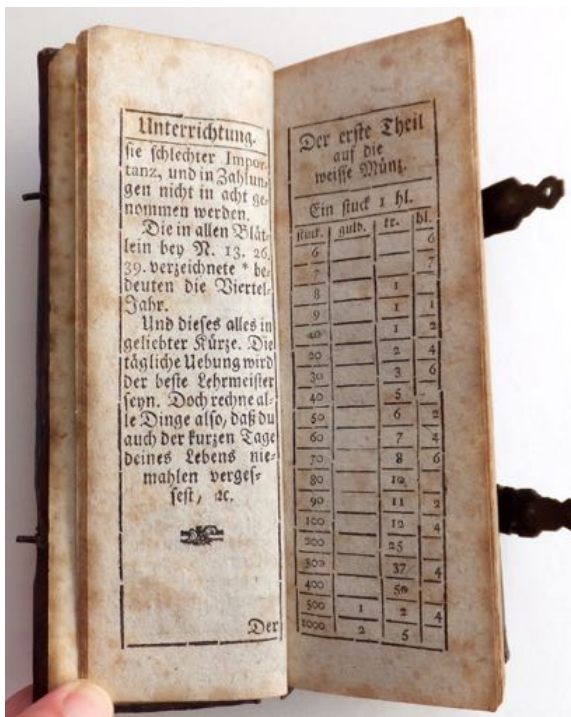 Unterrichtung.
sie schlechter Impor-
tanz, und in Zahlun-
gen nicht in acht ge-
nommen werden.
Die in allen Blät-
lein bey N. 13. 26.
39. verzeichnete * be-
deuten die Viertel-
Jahr.
Und dieses alles in
geliebter Kürze. Die
tägliche Uebung wird
der beste Lehrmeister
seyn. Doch rechne al-
le Dinge also, daß du
auch der kurzen Tage
deines Lebens nie-
mahlen verges-
sest, ꝛc.
Der
Der erste Theil
auf die
weisse Münz.
Ein stuck 1 hl.
stuck. guld. kr. hl.
6 6
7 7
8 1
9 1 1
10 1 2
20 2 4
30 3 6
40 5
50 6 2
60 7 4
70 8 6
80 10
90 11 2
100 12 4
200 25
300 37 4
400 50
500 1 2 4
1000 2 5